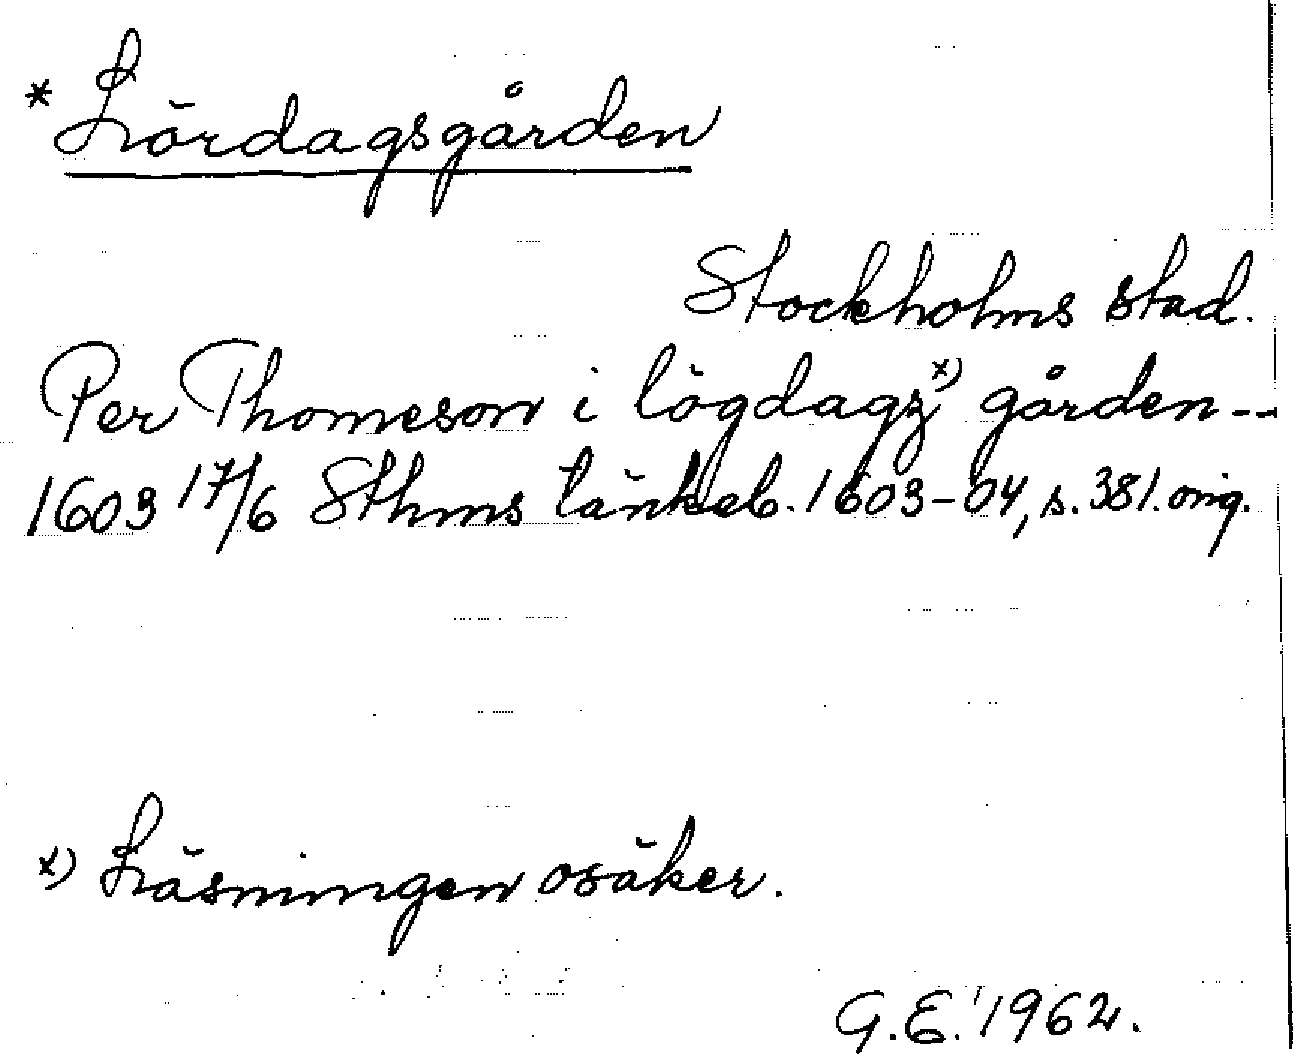 * Lördagsgården
Stockholms stad.
Per Thomeson i lögdagz x) gården--
1603 17/6 Sthms tänkeb. 1603-04, s. 381. orig.
x) Läsningen osäker.
G.E. 1962.